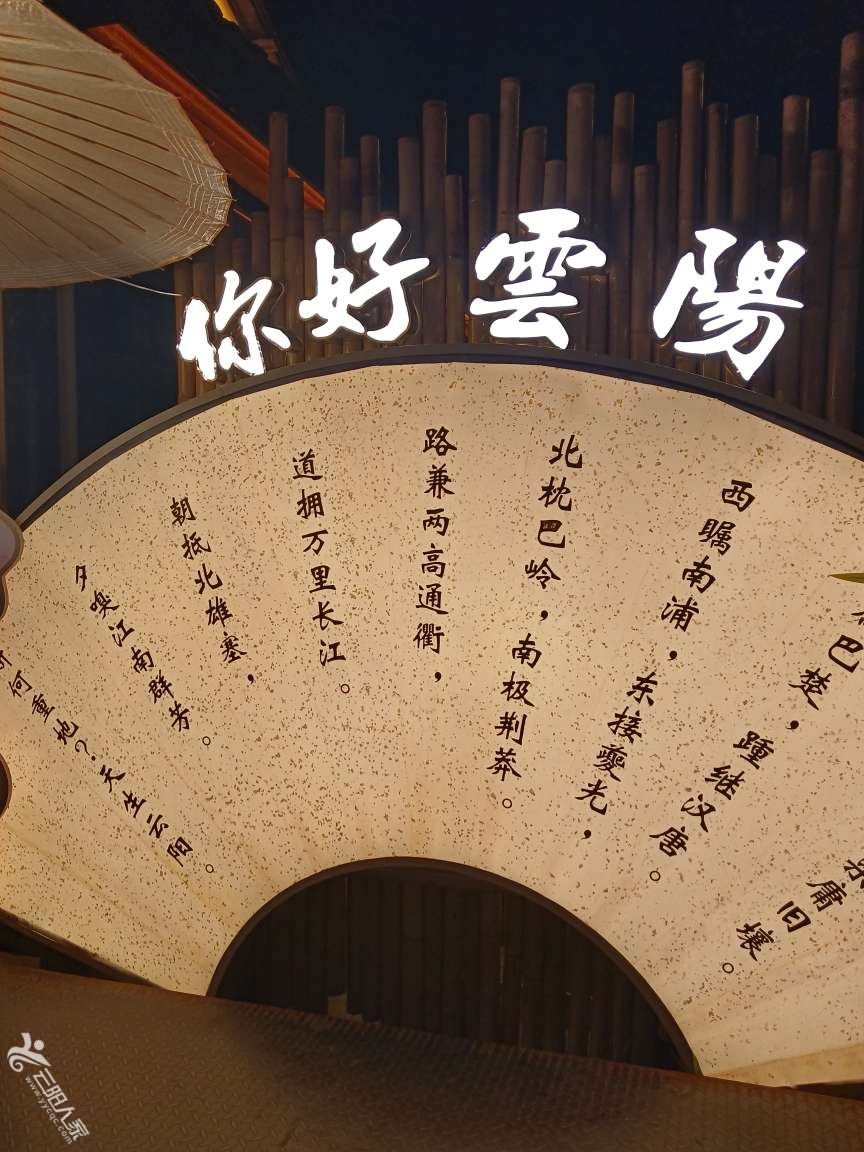 你好雲陽
庸旧壤。
巴楚，踵继汉唐。
西瞩南浦，东接夔光，
北枕巴岭，南极荆莽。
路兼两高通衢，
道拥万里长江。
朝抵北雄塞，
夕嗅江南群芳。
何重地？天生云阳。
云阳人家
www.yycqc.com